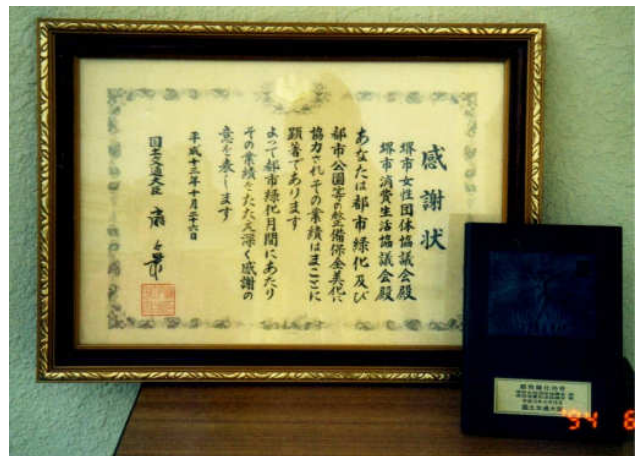 感謝状
堺市女性団体協議会殿
堺市消費生活協議会殿
あなたは都市緑化及び
都市公園等の整備保全美化に
協力されその業績はまことに
顕著であります
よって都市緑化月間にあたり
その業績をたたえ深く感謝の
意を表します
平成十三年十月二十六日
国土交通大臣
国土交通大臣
'94 6